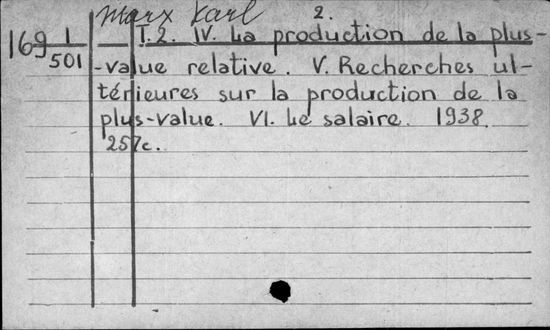 Marx Karl 2.
169 1/501 — T.2. IV. La production de la plus-
-value relative. V. Recherches ul-
térieures sur la production de la
plus-value. VI. Le salaire. 1938.
257c.